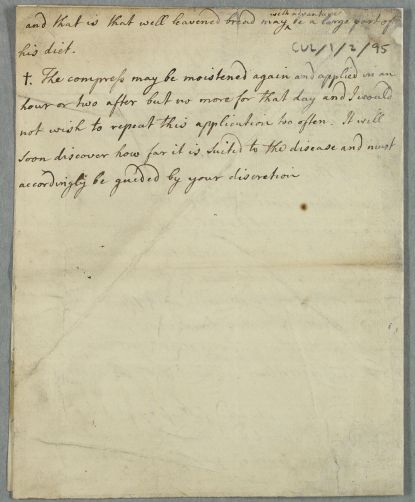 with advantage
and that is that well leavened bread may ^ be a large part of
his diet.
CUL/1/2/95
†. The compress may be moistened again and applied in an
hour or two after but no more for that day and I would
not wish to repeat this application too often. It will
soon discover how far it is suited to the disease and must
accordingly be guided by your discretion